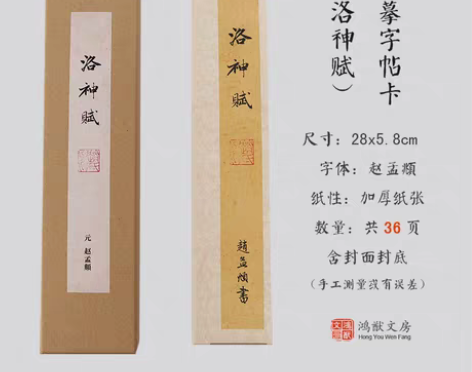 洛神赋
元 赵孟頫
洛神赋
趙孟頫書
摹字帖卡
洛神赋）
尺寸：28x5.8cm
字体：赵孟頫
纸性：加厚纸张
数量：共36页
含封面封底
（手工测量没有误差）
鸿猷文房
Hong You Wen Fang